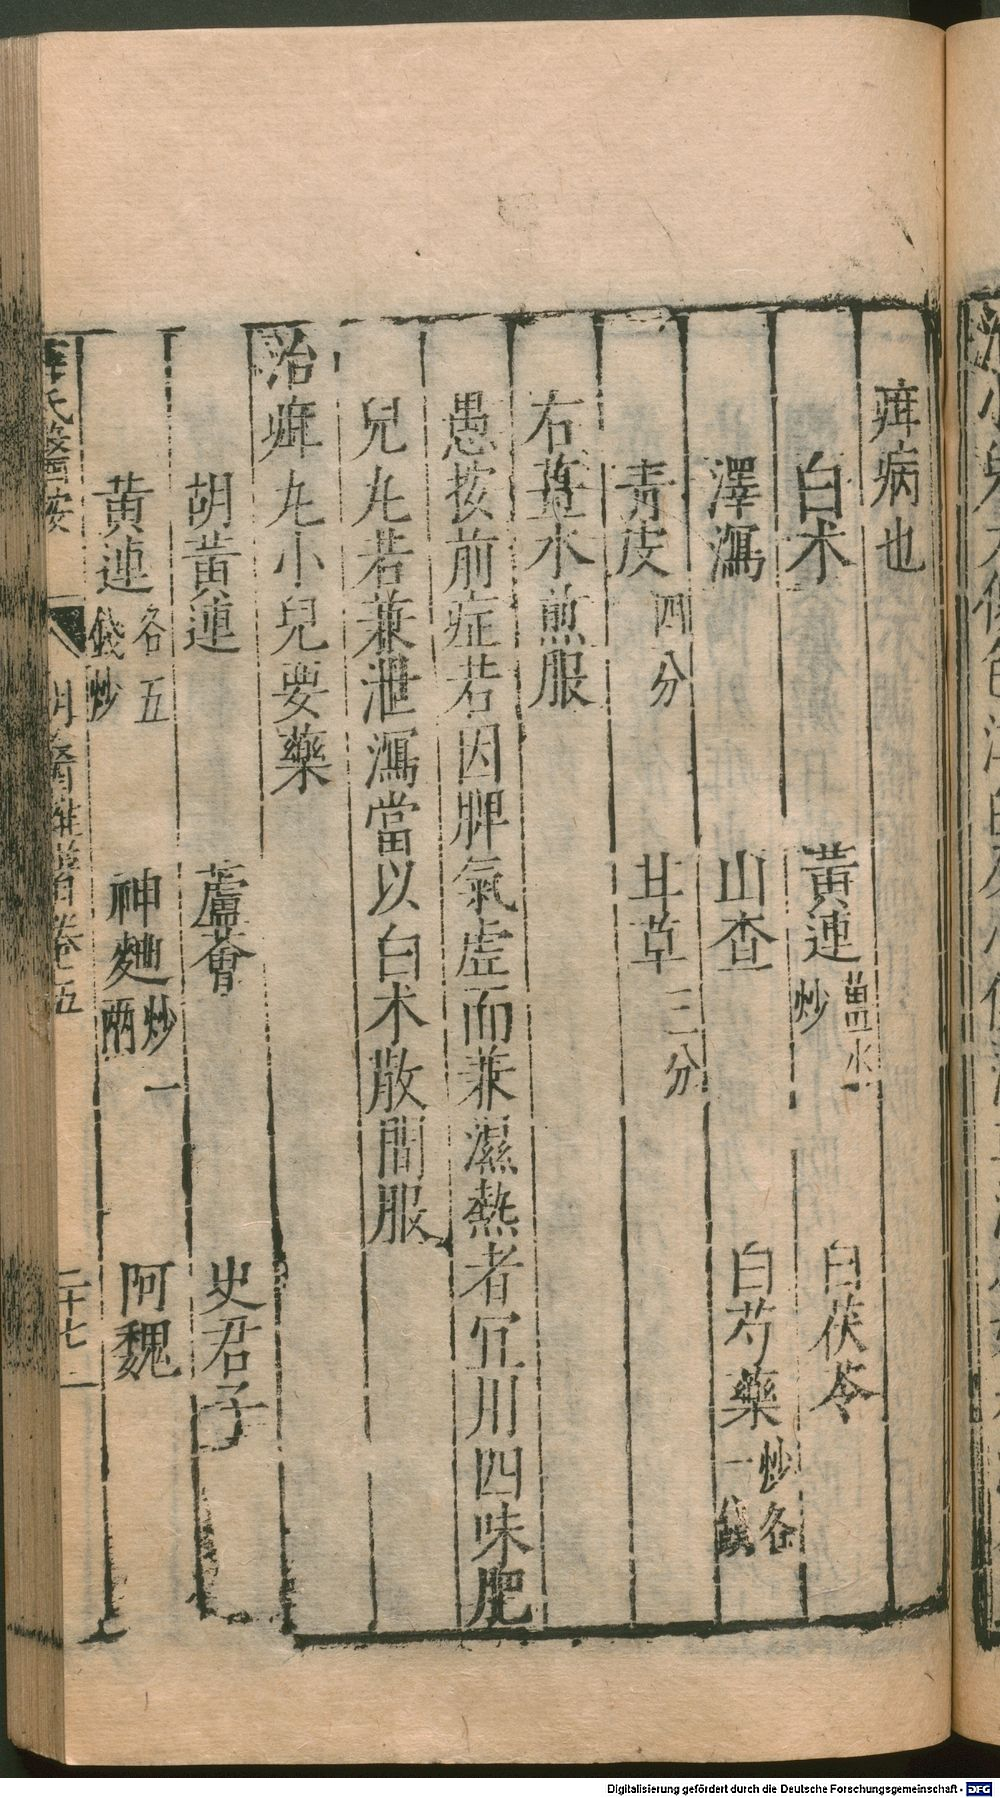 疳病也
白术　黃連薑水炒　白茯苓
澤瀉　山查　白芍藥炒各一錢
青皮四分　甘草三分
右㕮水煎服
愚按前症若因脾氣虛而兼濕熱者宜用四味肥
兒丸若兼泄瀉當以白术散間服
治疳丸小兒要藥
胡黃連　蘆薈　史君子
黃連各五錢炒　神麯炒一兩　阿魏
薛氏醫按　明醫雜著卷五　二十七
Digitalisierung gefördert durch die Deutsche Forschungsgemeinschaft - DFG